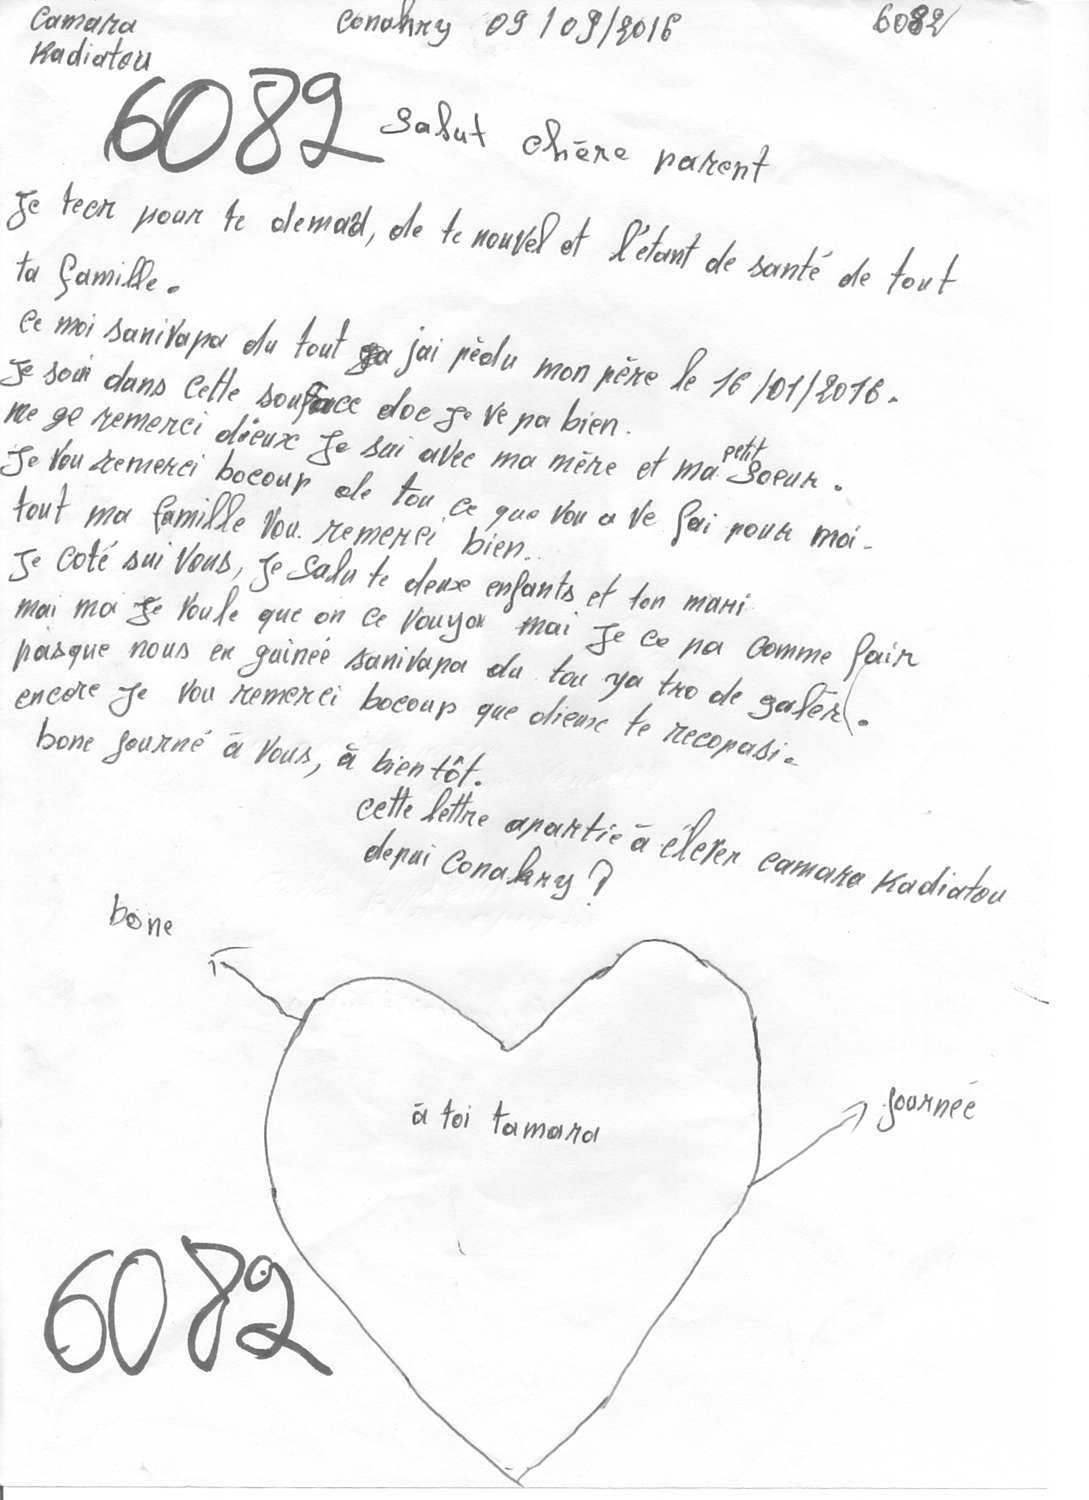 Camara
Kadiatou
Conakry 09/09/2016
6082
6082
Salut chère parent
Je tecr pour te demad, de te nouvel et l'étant de santé de tout
ta famille.
ce moi sanivapa du tout jai pèdu mon père le 16/01/2016.
Je soui dans cette souface doc je ve pa bien.
me ge remerci dieux Je sui avec ma mère et ma petit Soeur.
Je vou remerci bocoup de tou ce que vou a ve fai pour moi.
tout ma famille vou remerci bien.
Je coté sui vous, je Salu te deux enfants et ton mari
mai moi Je voule que on ce vouyor mai Je ce pa comme fair
pasque nous en guineé sanivapa du tou ya tro de galèr.
encore Je vou remerci bocoup que dieux te recopasi.
bone journé à vous, à bientôt.
cette lettre apartie à élever camara Kadiatou
depui Conakry ?
bone
à toi tamara
journeé
6082